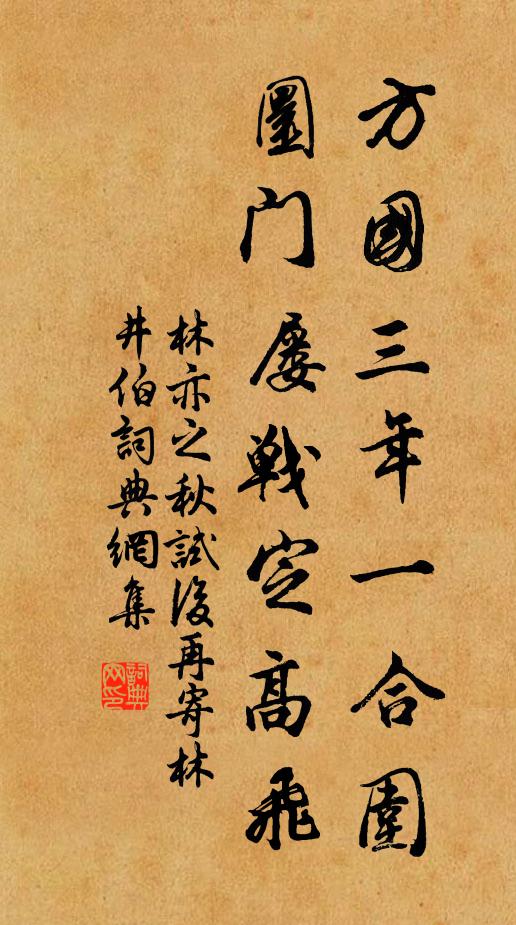 方國三年一合圍
圜门屡戦定高飛
林亦之秋試後再寄林
井伯詞典網集
詞典网印